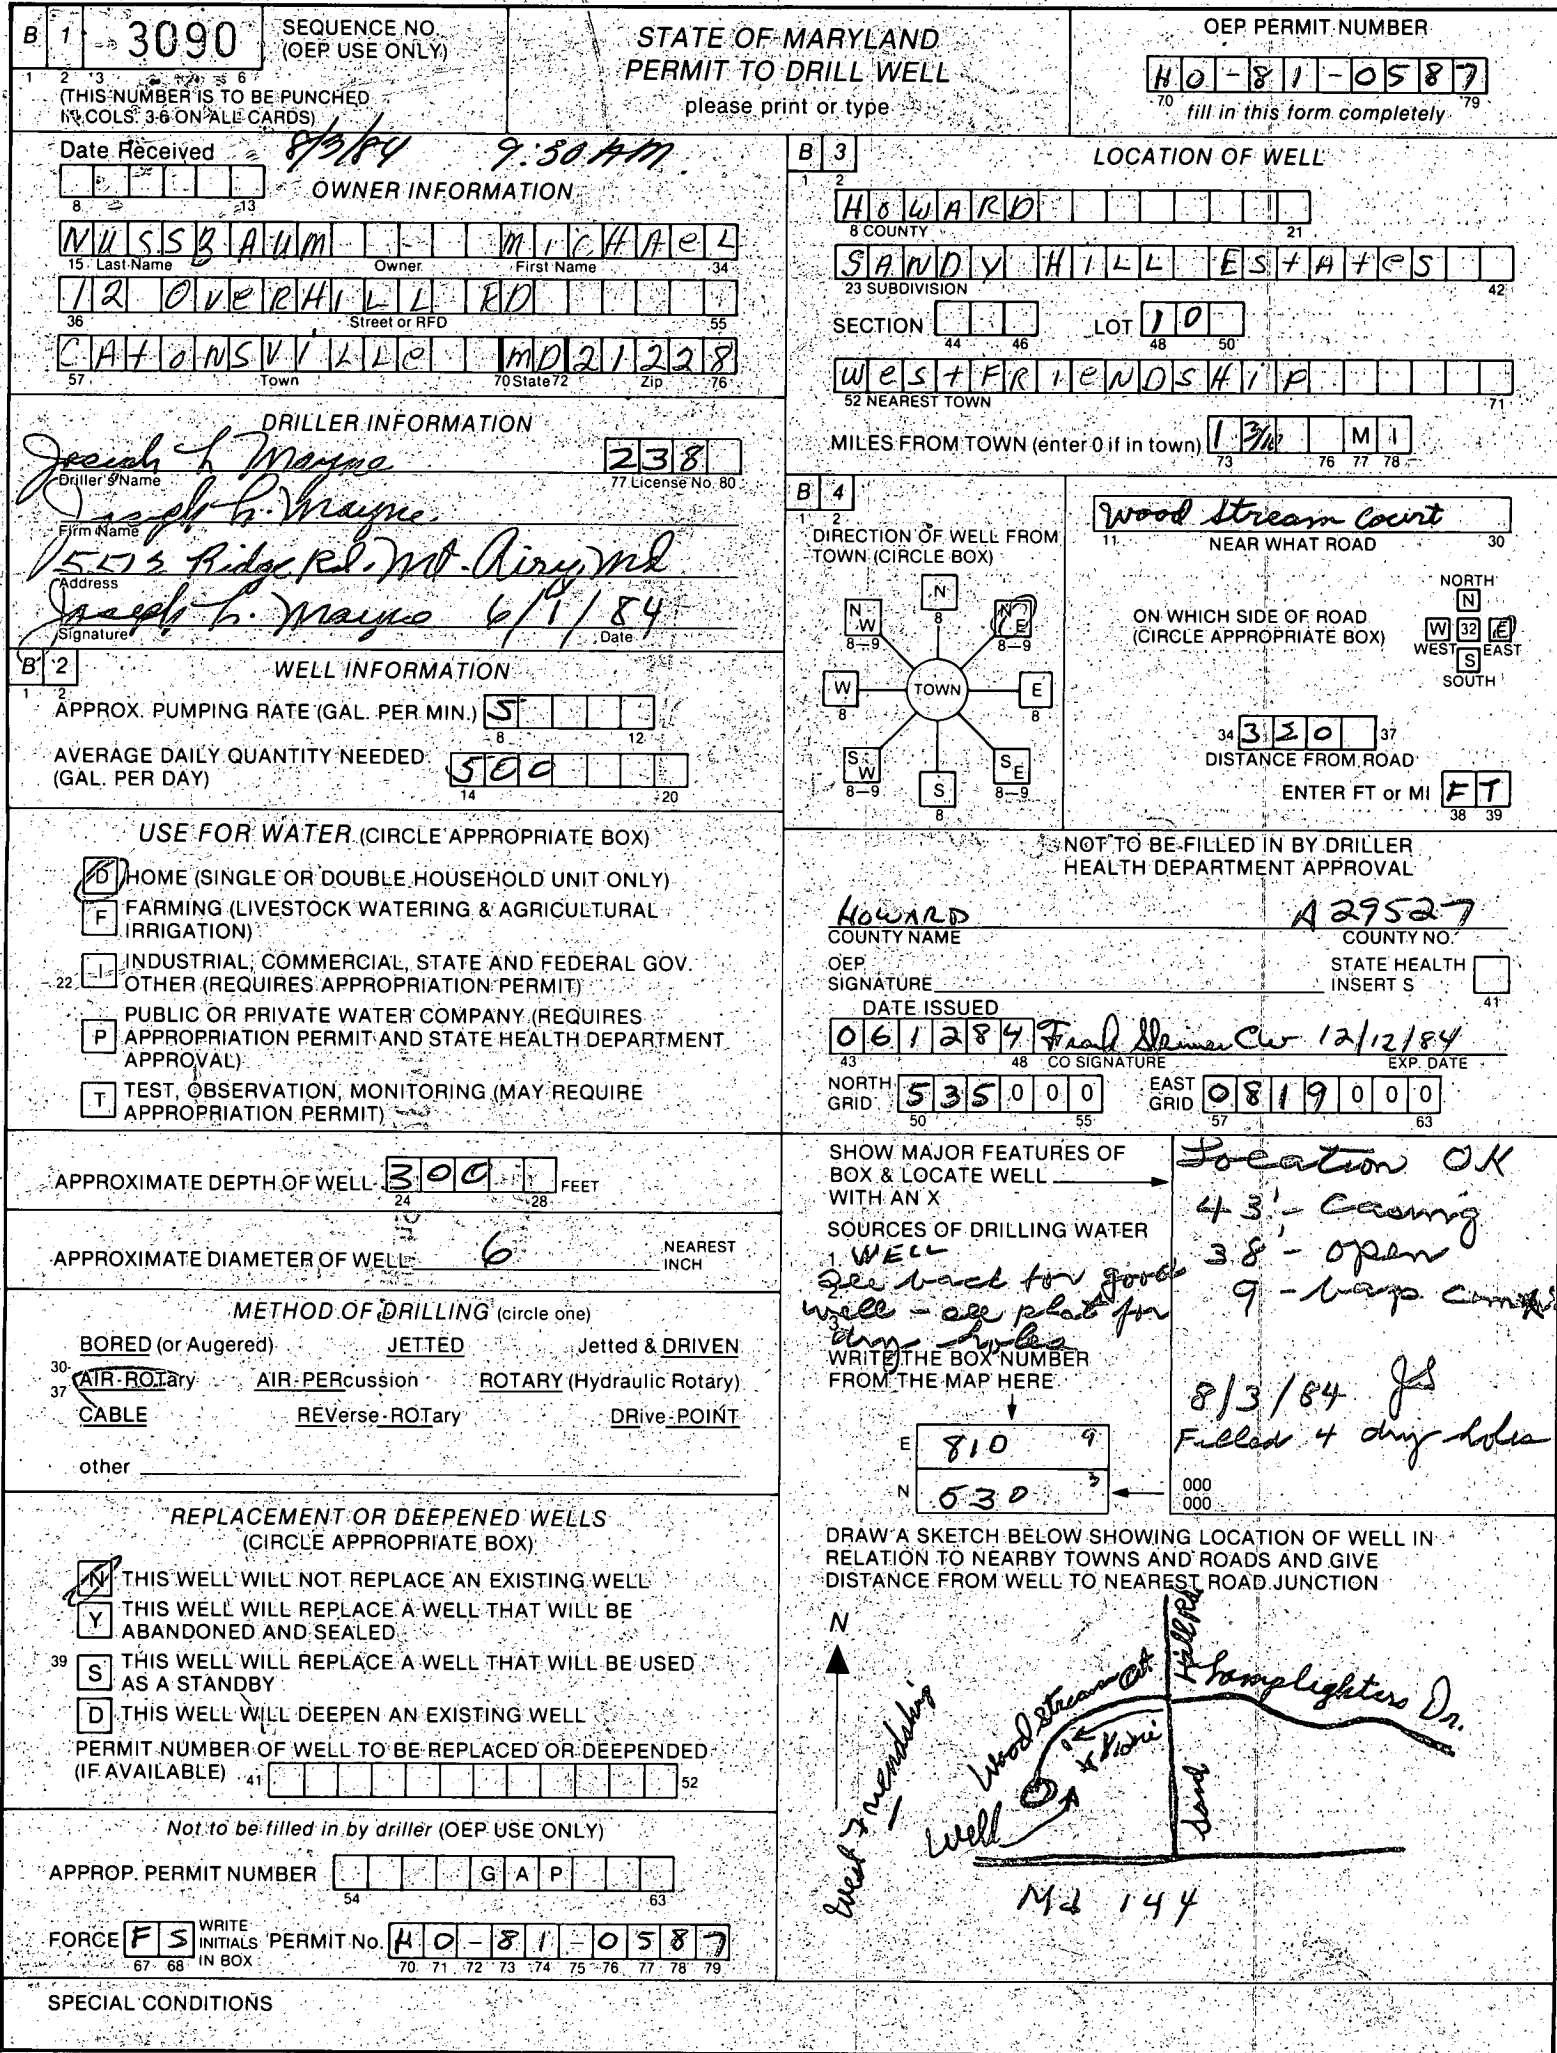 B 1 3090 SEQUENCE NO. (OEP USE ONLY)
1 2 3 6
(THIS NUMBER IS TO BE PUNCHED
IN COLS. 3-6 ON ALL CARDS)
STATE OF MARYLAND
PERMIT TO DRILL WELL
please print or type
OEP PERMIT NUMBER
HO-81-0587
70 79
fill in this form completely
Date Received 8/3/84 9:30 AM
8 13
OWNER INFORMATION
NUSSBAUM MICHAeL
15 Last Name Owner First Name 34
12 OveRHILL RD
36 Street or RFD 55
CAtONSVILLe MD 21228
57 Town 70 State 72 Zip 76
DRILLER INFORMATION
Joseph L Mayne 238
Driller's Name 77 License No. 80
Joseph L. Mayne
Firm Name
Ridge Rd. Mt. Airy, Md
Address
Joseph L. Mayne 6/1/84
Signature Date
B 2 WELL INFORMATION
1 2
APPROX. PUMPING RATE (GAL. PER MIN.) 5
8 12
AVERAGE DAILY QUANTITY NEEDED
(GAL. PER DAY) 500
14 20
USE FOR WATER (CIRCLE APPROPRIATE BOX)
D HOME (SINGLE OR DOUBLE HOUSEHOLD UNIT ONLY)
F FARMING (LIVESTOCK WATERING & AGRICULTURAL
IRRIGATION)
22 I INDUSTRIAL, COMMERCIAL, STATE AND FEDERAL GOV.
OTHER (REQUIRES APPROPRIATION PERMIT)
P PUBLIC OR PRIVATE WATER COMPANY (REQUIRES
APPROPRIATION PERMIT AND STATE HEALTH DEPARTMENT
APPROVAL)
T TEST, OBSERVATION, MONITORING (MAY REQUIRE
APPROPRIATION PERMIT)
APPROXIMATE DEPTH OF WELL 300 FEET
24 28
APPROXIMATE DIAMETER OF WELL 6 NEAREST
INCH
METHOD OF DRILLING (circle one)
BORED (or Augered) JETTED Jetted & DRIVEN
30-37 AIR-ROTary AIR-PERcussion ROTARY (Hydraulic Rotary)
CABLE REVerse-ROTary DRive-POINT
other
REPLACEMENT OR DEEPENED WELLS
(CIRCLE APPROPRIATE BOX)
N THIS WELL WILL NOT REPLACE AN EXISTING WELL
Y THIS WELL WILL REPLACE A WELL THAT WILL BE
ABANDONED AND SEALED
39 S THIS WELL WILL REPLACE A WELL THAT WILL BE USED
AS A STANDBY
D THIS WELL WILL DEEPEN AN EXISTING WELL
PERMIT NUMBER OF WELL TO BE REPLACED OR DEEPENDED
(IF AVAILABLE) 41 52
Not to be filled in by driller (OEP USE ONLY)
APPROP. PERMIT NUMBER GAP
54 63
FORCE FS WRITE INITIALS IN BOX PERMIT No. HO-81-0587
67 68 70 71 72 73 74 75 76 77 78 79
SPECIAL CONDITIONS
B 3 LOCATION OF WELL
1 2
HOWARD
8 COUNTY 21
SANDY HILL EStAteS
23 SUBDIVISION 42
SECTION LOT 10
44 46 48 50
WeSt FRieNDSHiP
52 NEAREST TOWN 71
MILES FROM TOWN (enter 0 if in town) 1 3/10 MI
73 76 77 78
B 4
1 2
DIRECTION OF WELL FROM
TOWN (CIRCLE BOX)
N
8
NW NE
8-9 8-9
W TOWN E
8 8
SW SE
8-9 8-9
S
8
Wood Stream Court
11 NEAR WHAT ROAD 30
ON WHICH SIDE OF ROAD
(CIRCLE APPROPRIATE BOX)
NORTH
N
W 32 E
WEST EAST
S
SOUTH
34 37
DISTANCE FROM ROAD
ENTER FT or MI FT
38 39
NOT TO BE FILLED IN BY DRILLER
HEALTH DEPARTMENT APPROVAL
HOWARD A 29527
COUNTY NAME COUNTY NO.
OEP STATE HEALTH
SIGNATURE INSERT S
41
DATE ISSUED
061284 Frank Skinner 12/12/84
43 48 CO SIGNATURE EXP. DATE
NORTH GRID 535000 EAST GRID 0819000
50 55 57 63
SHOW MAJOR FEATURES OF
BOX & LOCATE WELL
WITH AN X
SOURCES OF DRILLING WATER
1 WELL
See back for good
2
well - see plat for
3
dry holes
WRITE THE BOX NUMBER
FROM THE MAP HERE
E 810 9
N 530 3
Location OK
43' - Casing
38' - open
9 - bags
8/3/84 JS
Filled 4 dry holes
000
000
DRAW A SKETCH BELOW SHOWING LOCATION OF WELL IN
RELATION TO NEARBY TOWNS AND ROADS AND GIVE
DISTANCE FROM WELL TO NEAREST ROAD JUNCTION
N
West Friendship
Wood Stream Ct
Hill Rd
Lamplighters Dr.
Sand
Well
Md 144